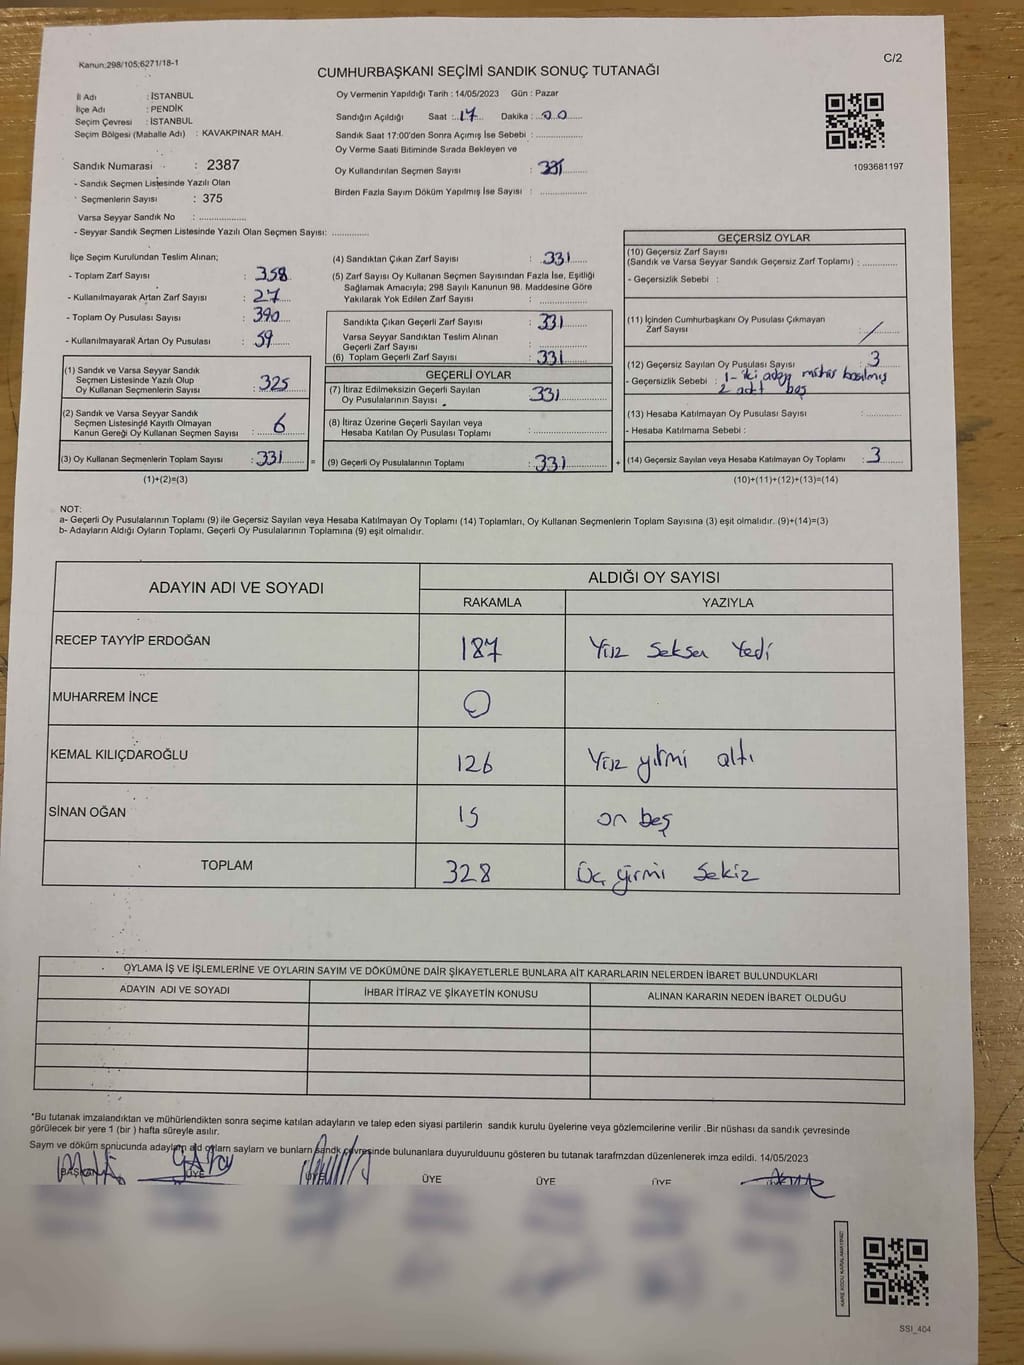 Kanun:298/105;6271/18-1
C/2
CUMHURBAŞKANI SEÇİMİ SANDIK SONUÇ TUTANAĞI
İl Adı : İSTANBUL
İlçe Adı : PENDİK
Seçim Çevresi : İSTANBUL
Seçim Bölgesi (Mahalle Adı) : KAVAKPINAR MAH.
Oy Vermenin Yapıldığı Tarih : 14/05/2023 Gün : Pazar
Sandığın Açıldığı Saat :..17... Dakika :..00......
Sandık Saat 17:00'den Sonra Açımış İse Sebebi : ................
Oy Verme Saati Bitiminde Sırada Bekleyen ve
Oy Kullandırılan Seçmen Sayısı : 331
Birden Fazla Sayım Döküm Yapılmış İse Sayısı : ................
1093681197
Sandık Numarası : 2387
- Sandık Seçmen Listesinde Yazılı Olan
Seçmenlerin Sayısı : 375
Varsa Seyyar Sandık No : ................
- Seyyar Sandık Seçmen Listesinde Yazılı Olan Seçmen Sayısı: .............
İlçe Seçim Kurulundan Teslim Alınan;
- Toplam Zarf Sayısı : 358
- Kullanılmayarak Artan Zarf Sayısı : 27
- Toplam Oy Pusulası Sayısı : 390
- Kullanılmayarak Artan Oy Pusulası : 59
(1) Sandık ve Varsa Seyyar Sandık
Seçmen Listesinde Yazılı Olup
Oy Kullanan Seçmenlerin Sayısı : 325
(2) Sandık ve Varsa Seyyar Sandık
Seçmen Listesinde Kayıtlı Olmayan
Kanun Gereği Oy Kullanan Seçmen Sayısı : 6
(3) Oy Kullanan Seçmenlerin Toplam Sayısı : 331 =
(1)+(2)=(3)
(4) Sandıktan Çıkan Zarf Sayısı : 331
(5) Zarf Sayısı Oy Kullanan Seçmen Sayısından Fazla İse, Eşitliği
Sağlamak Amacıyla; 298 Sayılı Kanunun 98. Maddesine Göre
Yakılarak Yok Edilen Zarf Sayısı : ................
Sandıkta Çıkan Geçerli Zarf Sayısı : 331
Varsa Seyyar Sandıktan Teslim Alınan
Geçerli Zarf Sayısı : ................
(6) Toplam Geçerli Zarf Sayısı : 331
GEÇERLİ OYLAR
(7) İtiraz Edilmeksizin Geçerli Sayılan
Oy Pusulalarının Sayısı : 331
(8) İtiraz Üzerine Geçerli Sayılan veya
Hesaba Katılan Oy Pusulası Toplamı : ................
(9) Geçerli Oy Pusulalarının Toplamı : 331 +
GEÇERSİZ OYLAR
(10) Geçersiz Zarf Sayısı
(Sandık ve Varsa Seyyar Sandık Geçersiz Zarf Toplamı) : ............
- Geçersizlik Sebebi :
(11) İçinden Cumhurbaşkanı Oy Pusulası Çıkmayan
Zarf Sayısı : /
(12) Geçersiz Sayılan Oy Pusulası Sayısı : 3
- Geçersizlik Sebebi : 1- iki aday mühür basılmış
2 adt boş
(13) Hesaba Katılmayan Oy Pusulası Sayısı : ............
- Hesaba Katılmama Sebebi :
(14) Geçersiz Sayılan veya Hesaba Katılmayan Oy Toplamı : 3
(10)+(11)+(12)+(13)=(14)
NOT:
a- Geçerli Oy Pusulalarının Toplamı (9) ile Geçersiz Sayılan veya Hesaba Katılmayan Oy Toplamı (14) Toplamları, Oy Kullanan Seçmenlerin Toplam Sayısına (3) eşit olmalıdır. (9)+(14)=(3)
b- Adayların Aldığı Oyların Toplamı, Geçerli Oy Pusulalarının Toplamına (9) eşit olmalıdır.
ADAYIN ADI VE SOYADI ALDIĞI OY SAYISI
RAKAMLA YAZIYLA
RECEP TAYYİP ERDOĞAN 187 Yüz Seksen Yedi
MUHARREM İNCE 0
KEMAL KILIÇDAROĞLU 126 Yüz yirmi altı
SİNAN OĞAN 15 on beş
TOPLAM 328 Üç yirmi Sekiz
OYLAMA İŞ VE İŞLEMLERİNE VE OYLARIN SAYIM VE DÖKÜMÜNE DAİR ŞİKAYETLERLE BUNLARA AİT KARARLARIN NELERDEN İBARET BULUNDUKLARI
ADAYIN ADI VE SOYADI İHBAR İTİRAZ VE ŞİKAYETİN KONUSU ALINAN KARARIN NEDEN İBARET OLDUĞU
*Bu tutanak imzalandıktan ve mühürlendikten sonra seçime katılan adayların ve talep eden siyasi partilerin sandık kurulu üyelerine veya gözlemcilerine verilir .Bir nüshası da sandık çevresinde
görülecek bir yere 1 (bir ) hafta süreyle asılır.
Saym ve döküm sonucunda adayların ald oylarn saylarn ve bunlarn sandk çevresinde bulunanlara duyurulduunu gösteren bu tutanak tarafmzdan düzenlenerek imza edildi. 14/05/2023
BAŞKAN ÜYE ÜYE ÜYE ÜYE ÜYE
KARE KODU KARALAMAYINIZ!
SSI_404